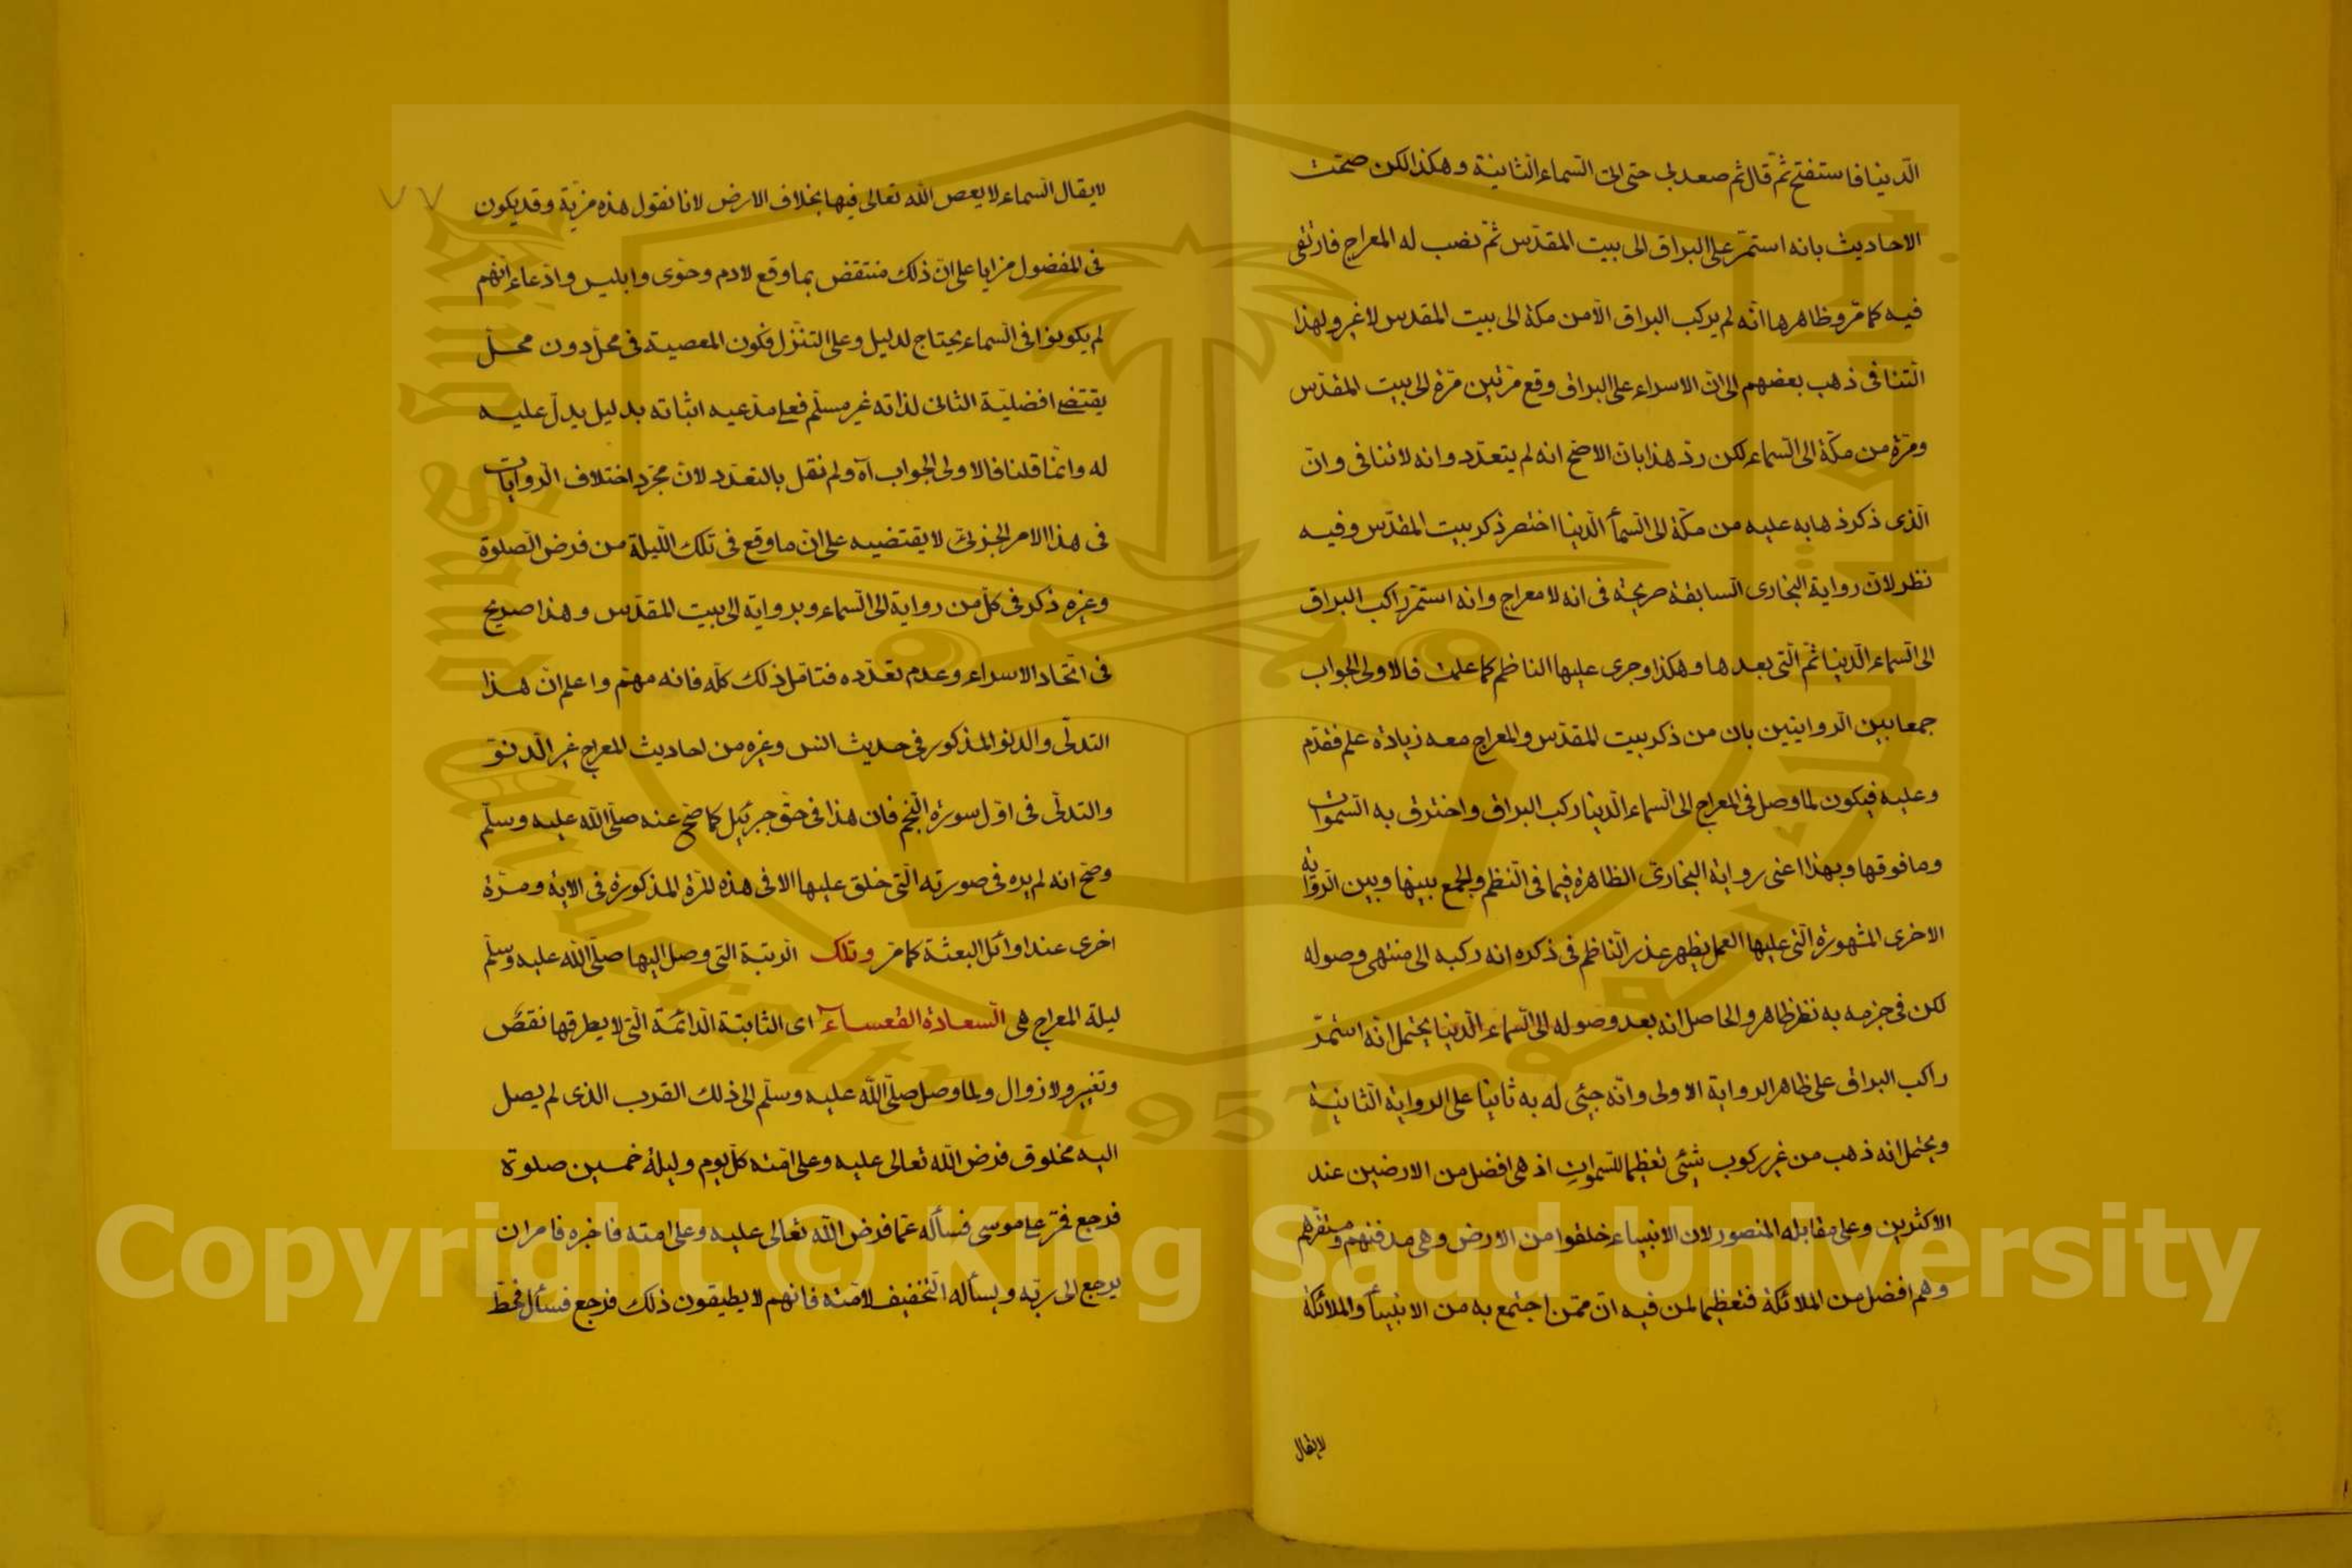 الدنيا فاستفتح ثمّ قال ثم صعد بى حتى اتى السماء الثانية وهكذا لكن صحت
الاحاديث بانه استمرّ على البراق الى بيت المقدّس ثمّ نصب له المعراج فارتقى
فيه كما مرّ وظاهرها انّه لم يركب البراق الّا من مكة الى بيت المقدس لا غير ولهذا
التنافى ذهب بعضهم الى انّ الاسراء على البراق وقع مرّتين مرّة الى بيت المقدّس
ومرّة من مكّة الى السّماء لكن ردّ هذا بان الاصح انه لم يتعدّد وانه لا تنافى وانّ
الّذى ذكر ذهابه عليه من مكّة الى السّمأ الدّنيا اختصر ذكر بيت المقدّس وفيه
نظر لانّ رواية البخارى السابقة صريحة فى انه لا معراج وانه استمرّ راكب البراق
الى السّماء الدّنيا ثمّ الّتى بعدها وهكذا وجرى عليها الناظم كما علمت فالاولى الجواب
جمعا بين الروايتين بان من ذكر بيت المقدّس والمعراج معه زيادة علم فقدّم
وعليه فيكون لما وصل فى المعراج الى السّماء الدّنيا ركب البراق واخترق به السّموات
وما فوقها وبهذا اعنى رواية البخارىّ الظاهرة فيما فى النّظم والجمع بينها وبين الرّواية
الاخرى المشهورة الّتى عليها العمل يظهر عذر النّاظم فى ذكره انه ركبه الى منتهى وصوله
لكن فى جزمه به نظر ظاهر والحاصل انه بعد وصوله الى السّماء الدّنيا يحتمل انّه استمرّ
راكب البراق على ظاهر الرواية الاولى وانّه جيئ له به ثانيا على الرواية الثّانية
ويحتمل انه ذهب من غير ركوب شيئ تعظيما للسّموات اذ هى افضل من الارضين عند
الاكثرين وعلى مقابله المنصور لان الانبياء خلقوا من الارض وهى مدفنهم ومستقرّهم
وهم افضل من الملائكة فتعظيما لمن فيه انّ ممّن اجتمع به من الانبيأ والملائكة
لا يقال
لا يقال السّماء لا يعص الله تعالى فيها بخلاف الارض لانا نقول هذه مزيّة وقد يكون
فى المفضول مزايا على انّ ذلك منتقض بما وقع لادم وحوّى وابليس وادّعاء انّهم
لم يكونوا فى السّماء يحتاج لدليل وعلى التنزّل فكون المعصية فى محلّ دون محلّ
يقتضى افضليّة الثانى لذاته غير مسلّم فعلى مدّعيه اثباته بدليل يدلّ عليه
له وانّما قلنا فالاولى الجواب آه ولم نقل بالتعدّد لانّ مجرّد اختلاف الرّوايات
فى هذا الامر الجزئىّ لا يقتضيه على انّ ما وقع فى تلك اللّيلة من فرض الصّلوة
وغيره ذكر فى كلّ من رواية الى السّماء وبرواية الى بيت المقدّس وهذا صريح
فى اتّحاد الاسراء وعدم تعدّده فتامّل ذلك كلّه فانه مهمّ واعلم انّ هذا
التدلّى والدنو المذكور فى حديث انس وغيره من احاديث المعراج غير الدنوّ
والتدلّى فى اوّل سورة النّجم فان هذا فى حقّ جبرئيل كما صحّ عنه صلّى اللّه عليه وسلّم
وصحّ انه لم يره فى صورته الّتى خلق عليها الا فى هذه المرّة المذكورة فى الاية ومرّة
اخرى عند اوائل البعثة كما مرّ وتلك الرتبة التى وصل اليها صلّى اللّه عليه وسلّم
ليلة المعراج هى السّعادة القعساء اى الثابتة الدائمة الّتى لا يطرقها نقص
وتغيير ولا زوال ولما وصل صلّى اللّه عليه وسلّم الى ذلك القرب الذى لم يصل
اليه مخلوق فرض اللّه تعالى عليه وعلى امّته كلّ يوم وليلة خمسين صلوة
فرجع فمرّ على موسى فسأله عمّا فرض اللّه تعالى عليه وعلى امته فاخبره فامر ان
يرجع الى ربّه ويسأله التّخفيف لامّته فانهم لا يطيقون ذلك فرجع فسأل فحطّ
King Saud University
1957
Copyright © King Saud University